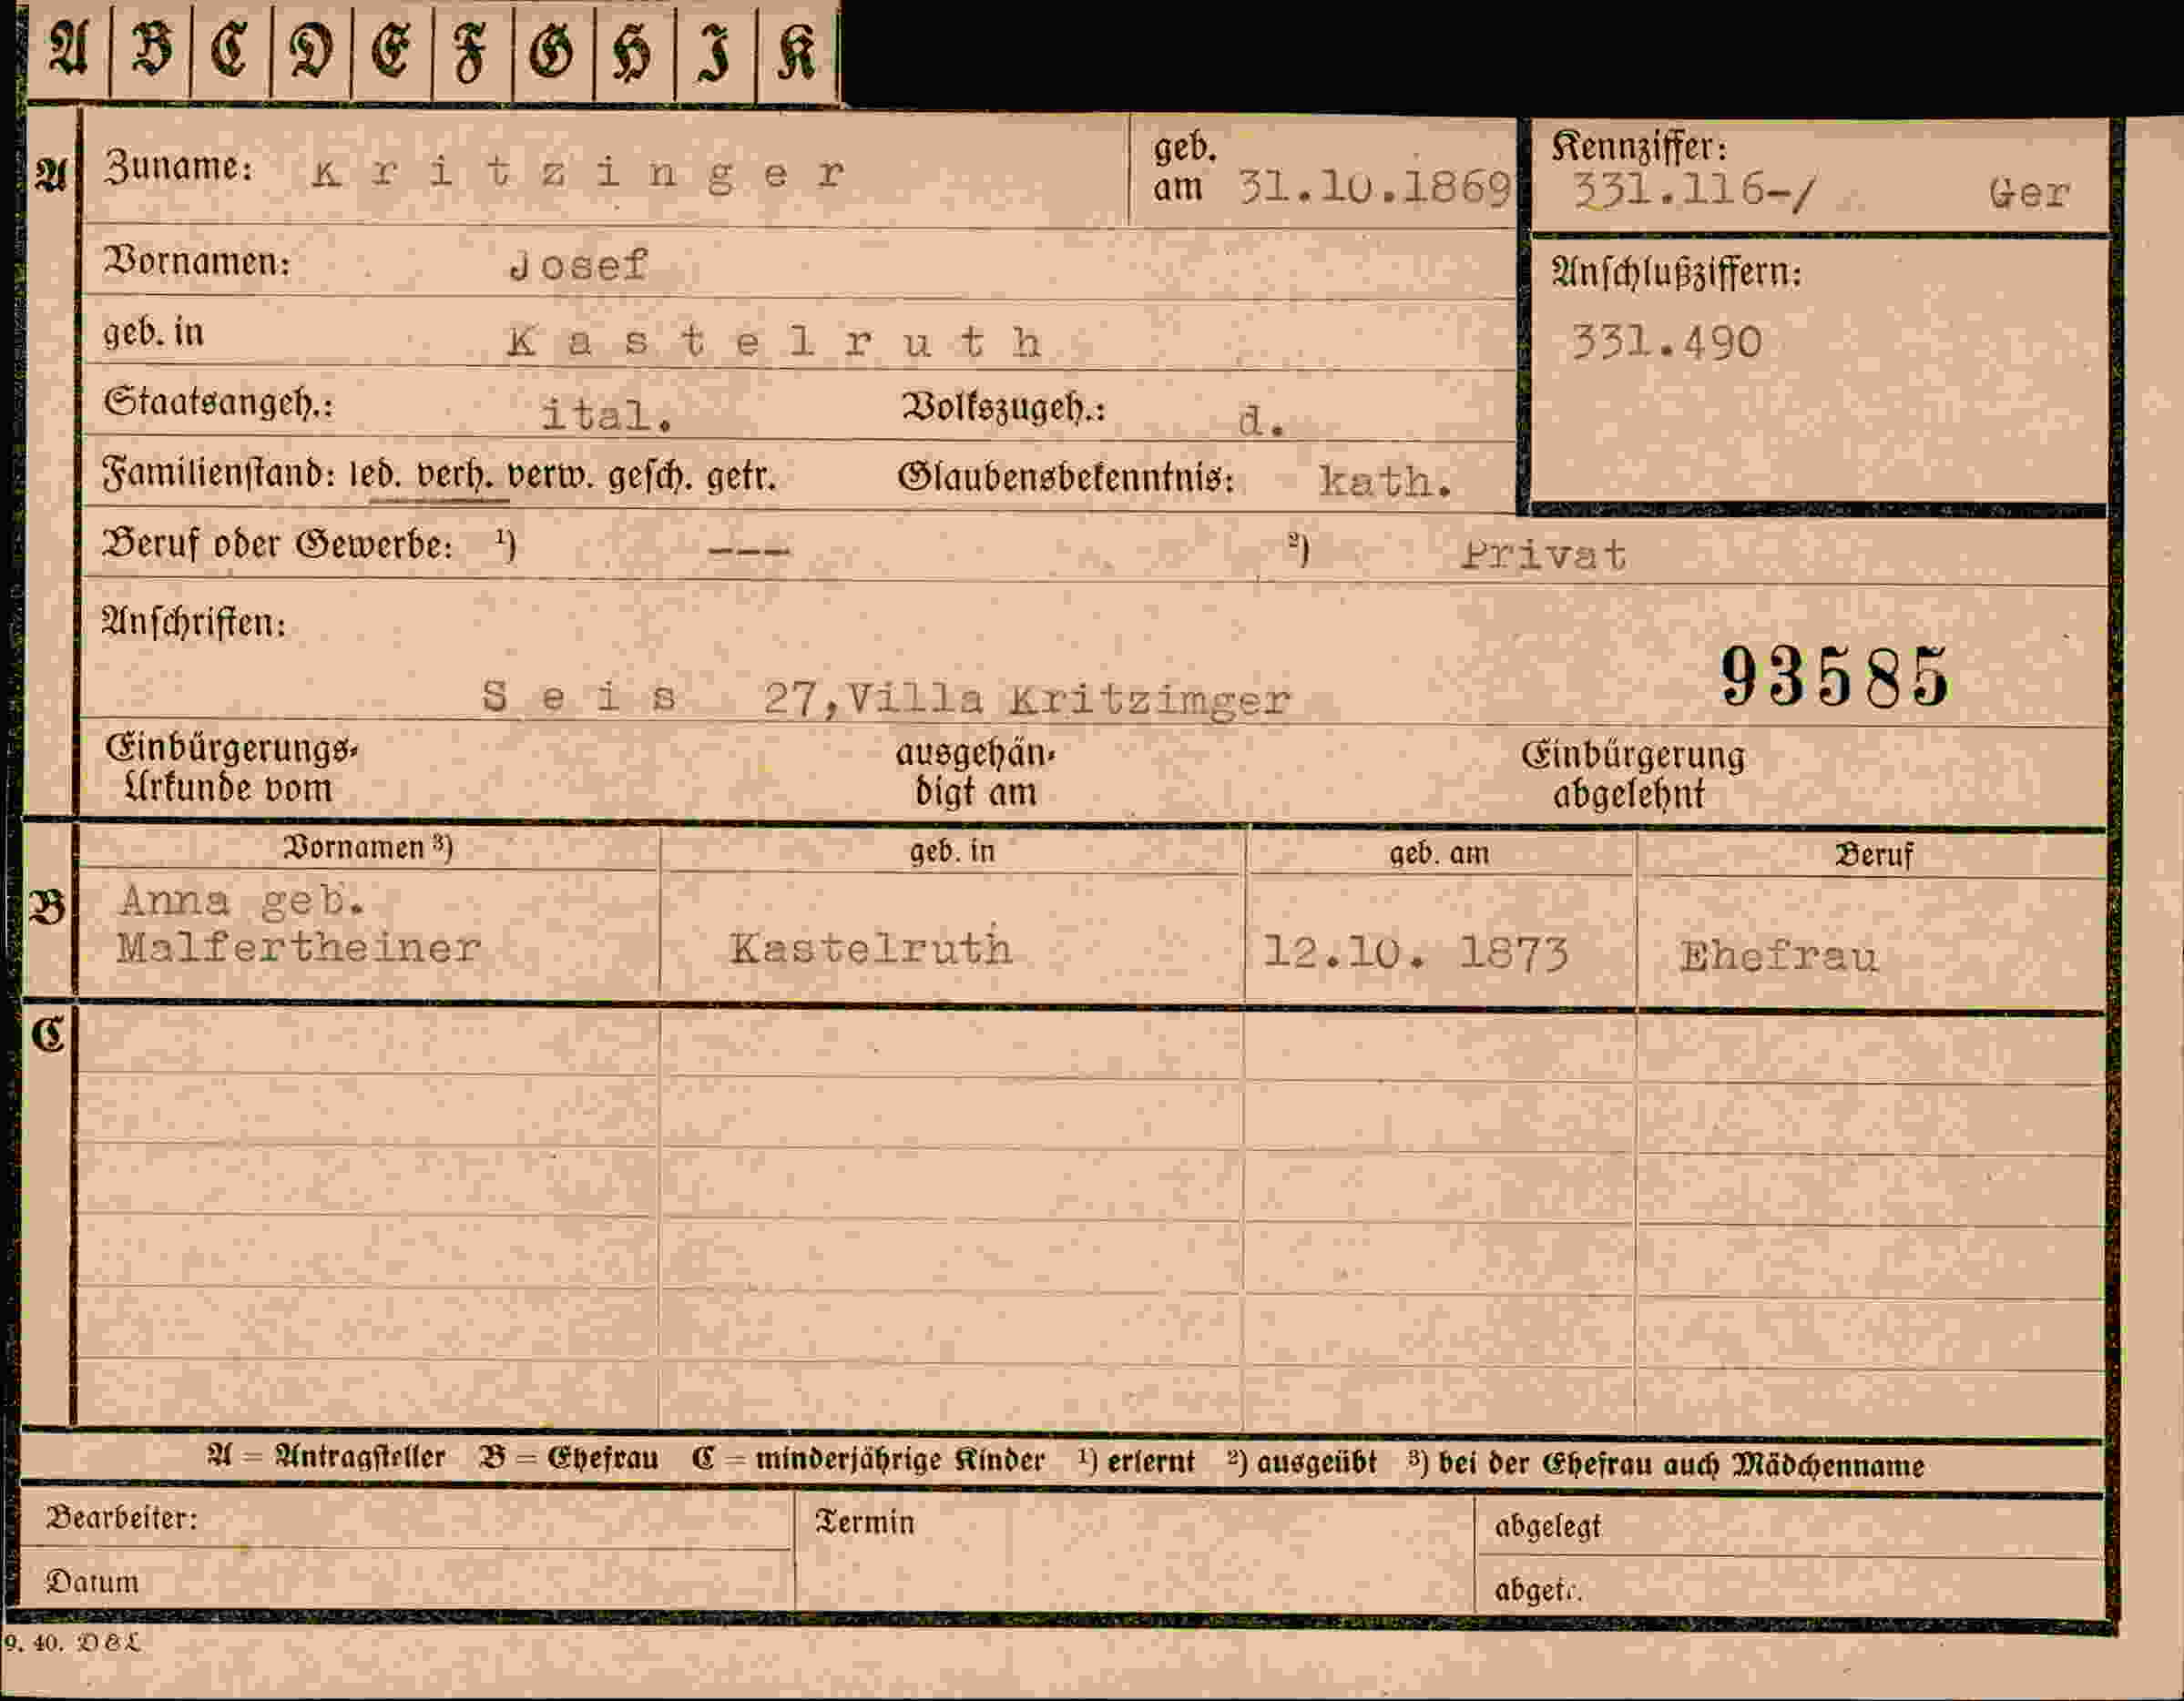 A B C D E F G H I K
A Zuname: K r i t z i n g e r geb. am 31.10.1869 Kennziffer: 331.116-/ Ger
Vornamen: Josef Anschlußziffern:
geb. in K a s t e l r u t h 331.490
Staatsangeh.: ital. Volkszugeh.: d.
Familienstand: led. verh. verw. gesch. getr. Glaubensbekenntnis: kath.
Beruf oder Gewerbe: ¹) --- ²) Privat
Anschriften:
S e i s 27,Villa Kritzimger 93585
Einbürgerungs- ausgehän- Einbürgerung
Urkunde vom digt am abgelehnt
Vornamen ³) geb. in geb. am Beruf
B Anna geb.
Malfertheiner Kastelruth 12.10. 1873 Ehefrau
C
A = Antragsteller B = Ehefrau C = minderjährige Kinder ¹) erlernt ²) ausgeübt ³) bei der Ehefrau auch Mädchenname
Bearbeiter: Termin abgelegt
Datum abgetr.
9. 40. D&L